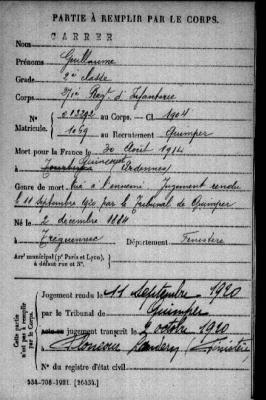 PARTIE À REMPLIR PAR LE CORPS.
Nom CARRER
Prénoms Guillaume
Grade 2e classe
Corps Régt d'Infanterie
N° 013292 au Corps. — Cl 1904
Matricule. 1069 au Recrutement Quimper
Mort pour la France le 30 Août 1914
à Quincourt Ardennes
Genre de mort tué à l'ennemi Jugement rendu
le 11 septembre 1920 par le Tribunal de Quimper
Né le 2 décembre 1884
à Tréguennec Département Finistère
Arr¹ municipal (p' Paris et Lyon),
à défaut rue et N°.
Cette partie
n'est pas à remplir
par le Corps.
Jugement rendu le 11 Septembre 1920
par le Tribunal de Quimper
jugement transcrit le 2 octobre 1920
à Ploneour Lanvern (Finistère)
N° du registre d'état civil
534-708-1921. [26434.]